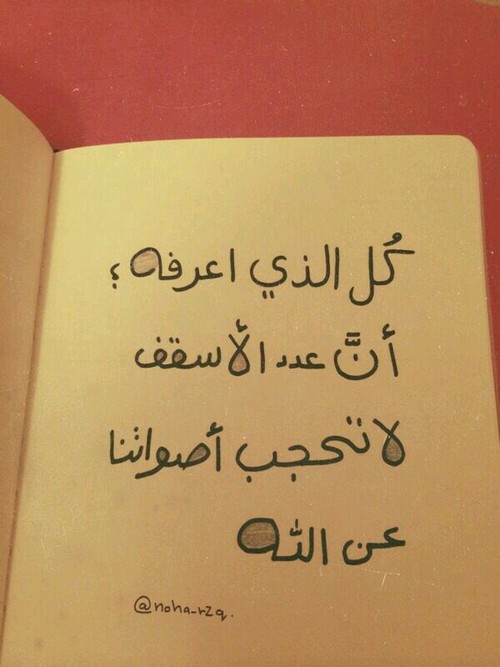 كُل الذي اعرفه ؛
أنَّ عدد الأسقف
لا تحجب أصواتنا
عن الله
@noha_rzq.